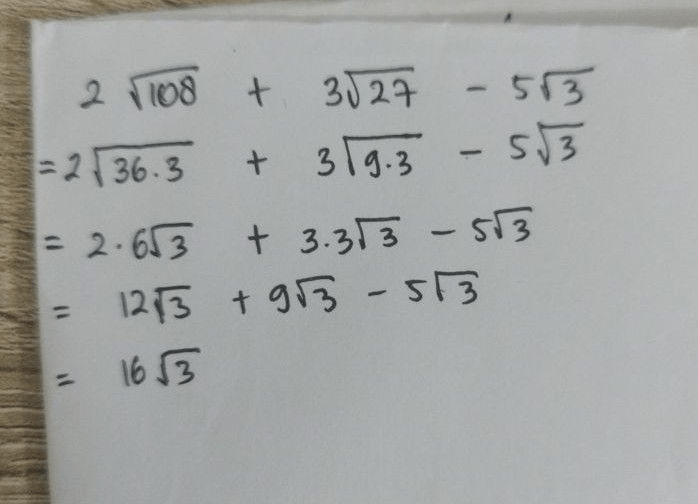 2 √108 + 3√27 - 5√3
= 2√36.3 + 3√9.3 - 5√3
= 2.6√3 + 3.3√3 - 5√3
= 12√3 + 9√3 - 5√3
= 16√3